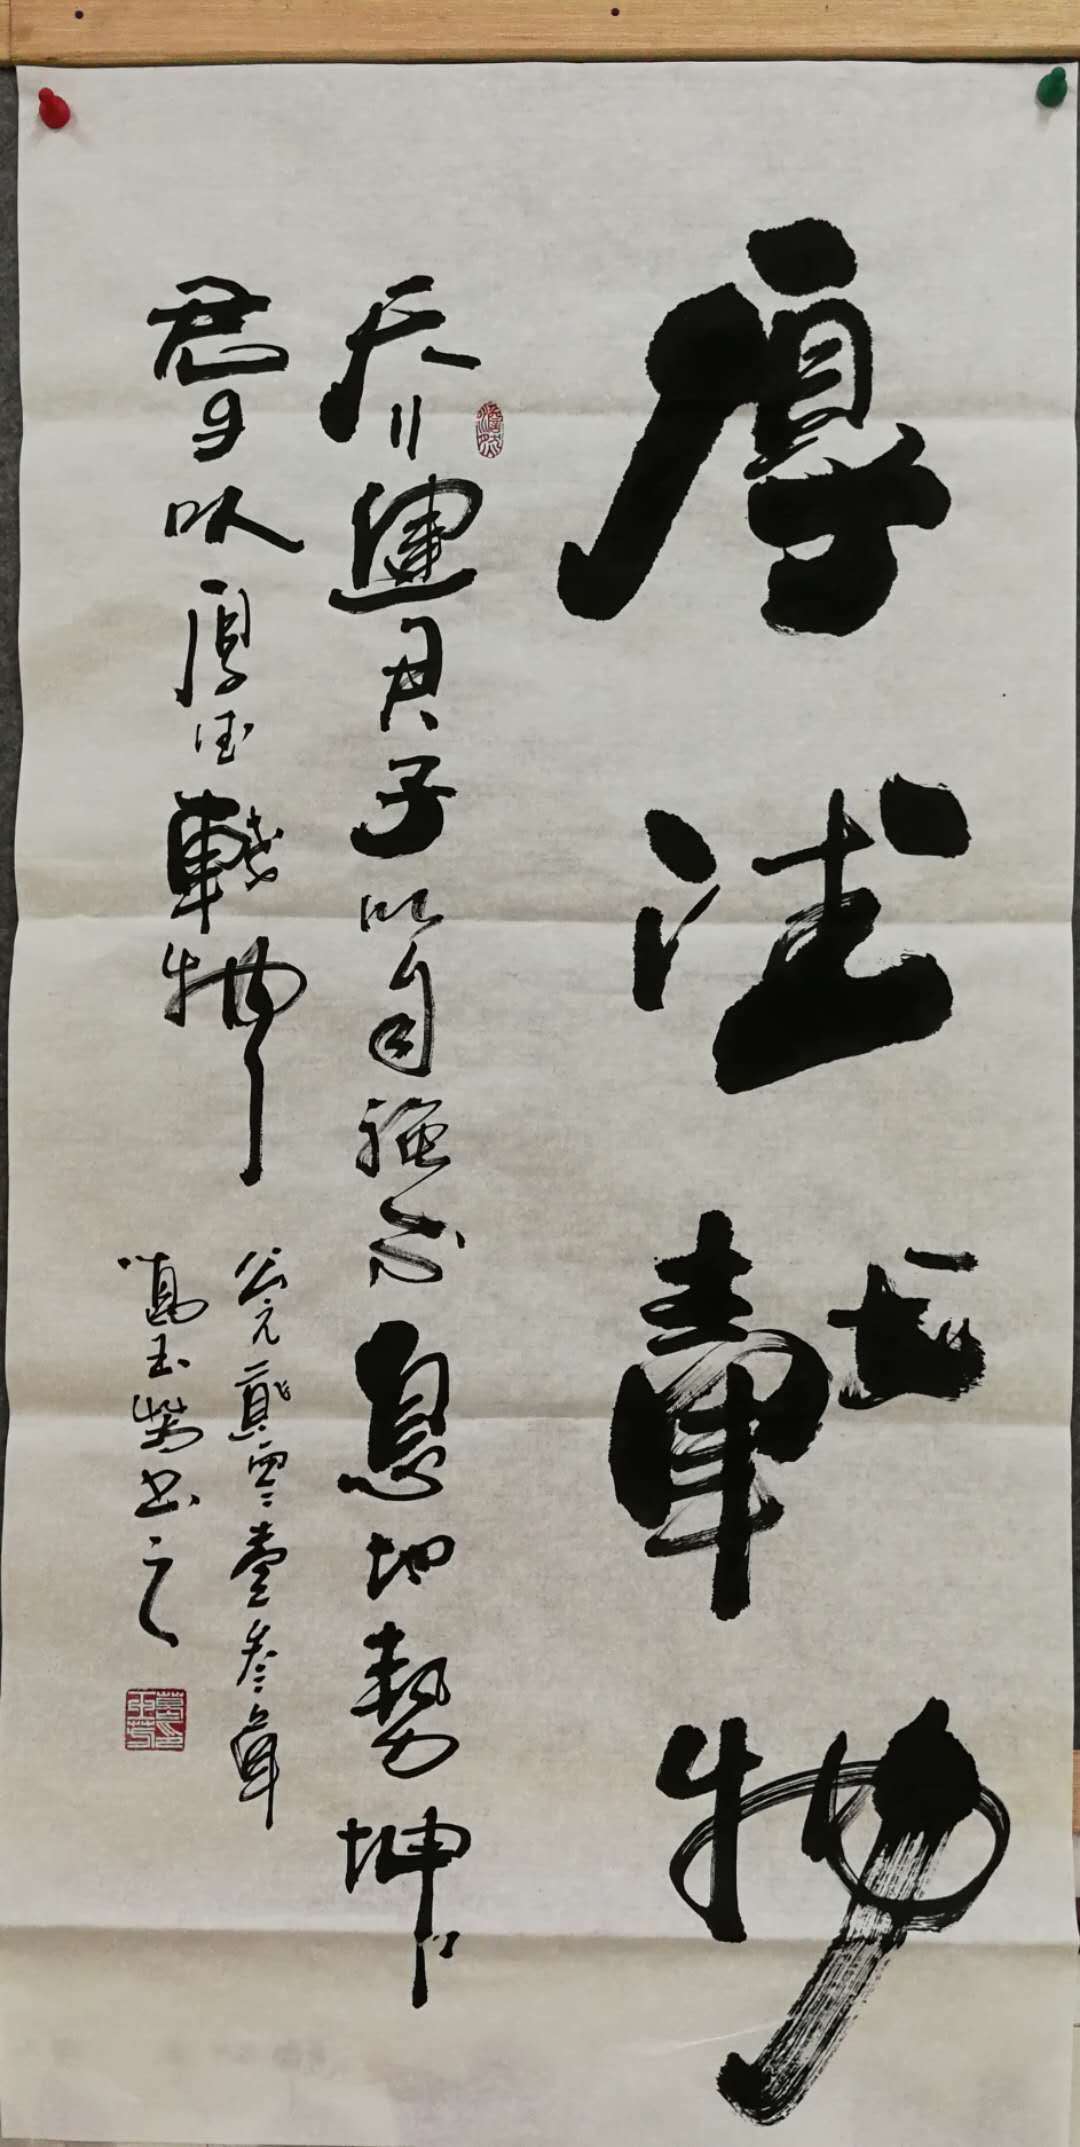 厚德载物
天行健君子以自强不息地势坤
君子以厚德载物
公元贰零壹叁年
玉芳书之